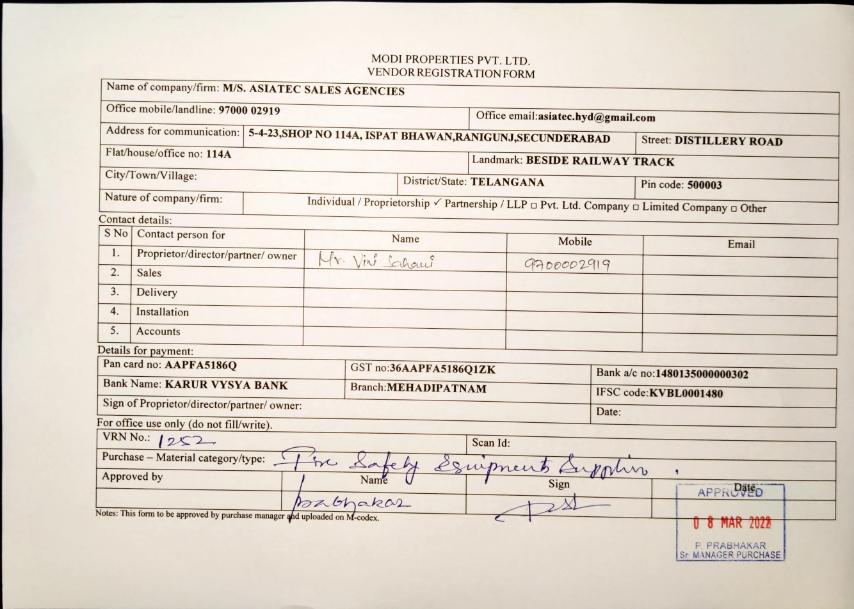 MODI PROPERTIES PVT. LTD.
VENDOR REGISTRATION FORM
Name of company/firm: M/S. ASIATEC SALES AGENCIES
Office mobile/landline: 97000 02919 Office email:asiatec.hyd@gmail.com
Address for communication: 5-4-23,SHOP NO 114A, ISPAT BHAWAN,RANIGUNJ,SECUNDERABAD Street: DISTILLERY ROAD
Flat/house/office no: 114A Landmark: BESIDE RAILWAY TRACK
City/Town/Village: District/State: TELANGANA Pin code: 500003
Nature of company/firm: Individual / Proprietorship ✓ Partnership / LLP □ Pvt. Ltd. Company □ Limited Company □ Other
Contact details:
S No Contact person for Name Mobile Email
1. Proprietor/director/partner/ owner Mr. Viri Sahani 9700002919
2. Sales
3. Delivery
4. Installation
5. Accounts
Details for payment:
Pan card no: AAPFA5186Q GST no:36AAPFA5186Q1ZK Bank a/c no:1480135000000302
Bank Name: KARUR VYSYA BANK Branch:MEHADIPATNAM IFSC code:KVBL0001480
Sign of Proprietor/director/partner/ owner: Date:
For office use only (do not fill/write).
VRN No.: 1252 Scan Id:
Purchase – Material category/type: Fire Safety Equipments Supplier.
Approved by Name Sign Date
prabhakar
APPROVED
08 MAR 2022
P. PRABHAKAR
Sr. MANAGER PURCHASE
Notes: This form to be approved by purchase manager and uploaded on M-codex.